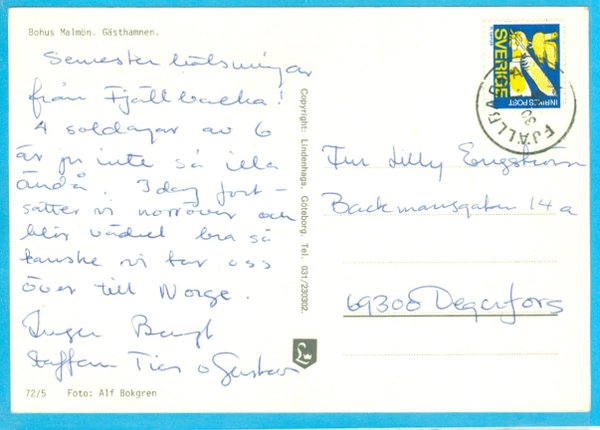 Bohus Malmön. Gästhamnen.
Semesterhälsningar
från Fjällbacka!
4 soldagar av 6
är ju inte så illa
ändå. Idag fort-
sätter vi norröver och
blir vädret bra så
kanske vi tar oss
över till Norge.
Inger Bengt
Staffan Ties o Gustav
72/5 Foto: Alf Bokgren
Copyright: Lindenhags, Göteborg. Tel. 031/230302.
L
SVERIGE
INRIKES POST
FJÄLLBACKA
30
Fru Lilly Engström
Backmansgatan 14 a
69300 Degerfors